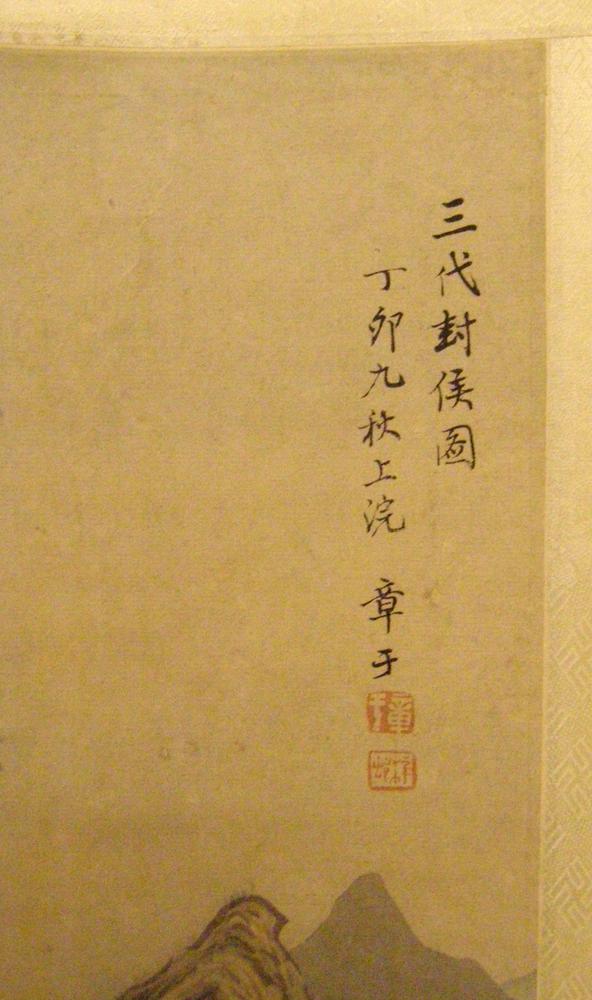 三代封侯圖
丁卯九秋上浣 章于